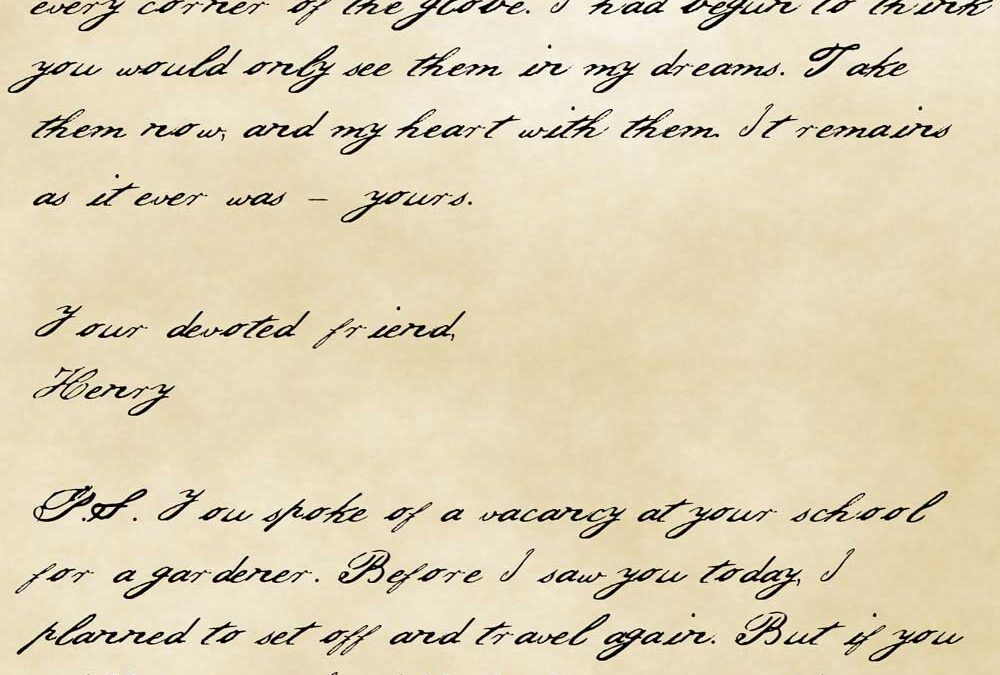 every corner of the globe. I had begun to think
you would only see them in my dreams. Take
them now, and my heart with them. It remains
as it ever was – yours.
Your devoted friend,
Henry
P.S. You spoke of a vacancy at your school
for a gardener. Before I saw you today, I
planned to set off and travel again. But if you